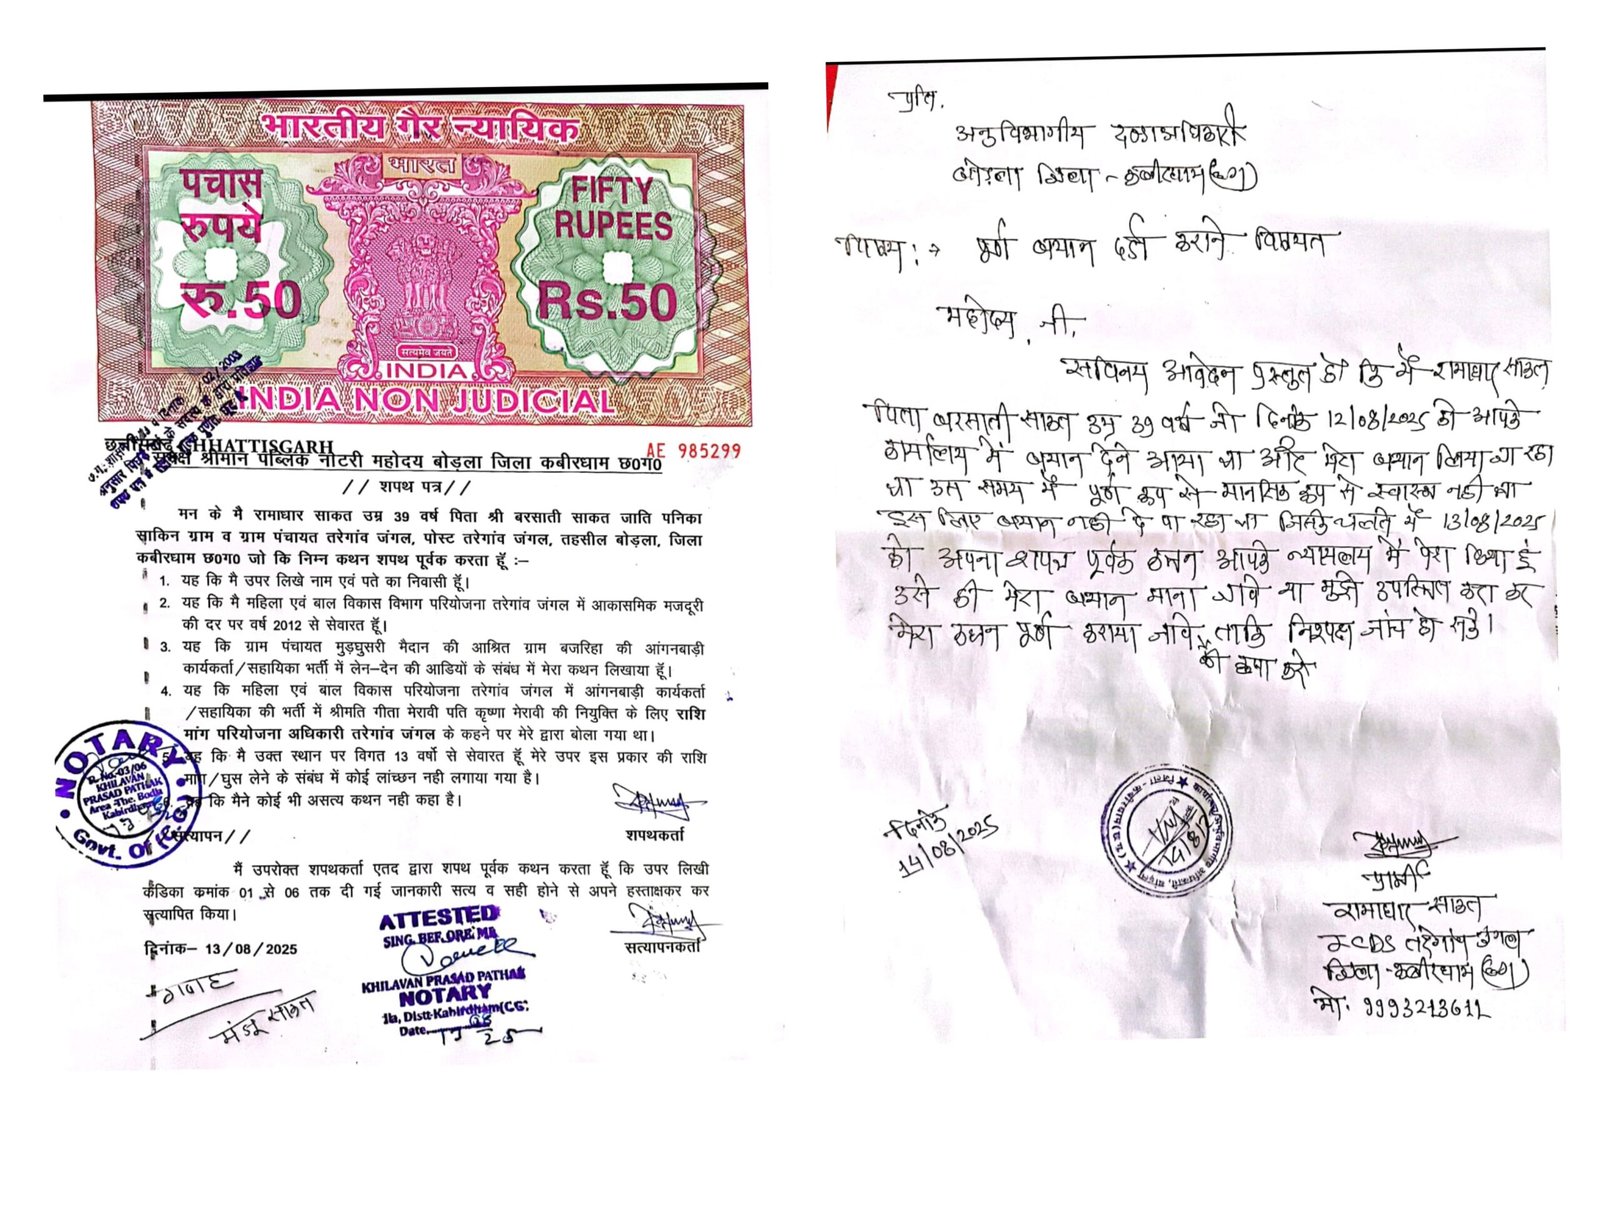 भारतीय गैर न्यायिक
भारत
पचास
रुपये
रु.50
FIFTY
RUPEES
Rs.50
सत्यमेव जयते
INDIA
INDIA NON JUDICIAL
छत्तीसगढ़ CHHATTISGARH
AE 985299
समक्ष श्रीमान पब्लिक नोटरी महोदय बोड़ला जिला कबीरधाम छ0ग0
// शपथ पत्र//
मन के मै रामाधार साकत उम्र 39 वर्ष पिता श्री बरसाती साकत जाति पनिका
साकिन ग्राम व ग्राम पंचायत तरेगांव जंगल, पोस्ट तरेगांव जंगल, तहसील बोड़ला, जिला
कबीरधाम छ0ग0 जो कि निम्न कथन शपथ पूर्वक करता हूँ :-
1. यह कि मै उपर लिखे नाम एवं पते का निवासी हूँ।
2. यह कि मै महिला एवं बाल विकास विभाग परियोजना तरेगांव जंगल में आकासमिक मजदूरी
की दर पर वर्ष 2012 से सेवारत हूँ।
3. यह कि ग्राम पंचायत मुड़घुसरी मैदान की आश्रित ग्राम बजरिहा की आंगनबाड़ी
कार्यकर्ता/सहायिका भर्ती में लेन-देन की आडियों के संबंध में मेरा कथन लिखाया हूँ।
4. यह कि महिला एवं बाल विकास परियोजना तरेगांव जंगल में आंगनबाड़ी कार्यकर्ता
/सहायिका की भर्ती में श्रीमति गीता मेरावी पति कृष्णा मेरावी की नियुक्ति के लिए राशि
मांग परियोजना अधिकारी तरेगांव जंगल के कहने पर मेरे द्वारा बोला गया था।
यह कि मै उक्त स्थान पर विगत 13 वर्षो से सेवारत हूँ मेरे उपर इस प्रकार की राशि
मांग/घुस लेने के संबंध में कोई लांच्छन नही लगाया गया है।
यह कि मैने कोई भी असत्य कथन नही कहा है।
शपथकर्ता
सत्यापन//
मैं उपरोक्त शपथकर्ता एतद द्वारा शपथ पूर्वक कथन करता हूँ कि उपर लिखी
कंडिका कमांक 01 से 06 तक दी गई जानकारी सत्य व सही होने से अपने हस्ताक्षकर कर
सत्यापित किया।
सत्यापनकर्ता
दिनांक- 13/08/2025
NOTARY
R. No.-03/06
KHILAVAN
PRASAD PATHAK
Area -The. Bodla
Kabirdham
Govt. Of (C.G.)
ATTESTED
SING. BEF. ORE. MA
KHILAVAN PRASAD PATHAK
NOTARY
Distt-Kabirdham(C.G.
Date
गवाह
मंजू साकत
प्रति,
अनुविभागीय दण्डाधिकारी
बोड़ला जिला - कबीरधाम (छ०ग)
विषय :→ पूर्ण बयान दर्ज कराने विषयत
महोदय, जी,
सविनय आवेदन प्रस्तुत है कि मैं रामाधार साकत
पिता बरसाती साकत उम्र 39 वर्ष जो दिनांक 12/08/2025 को आपके
कार्यालय में बयान देने आया था और मेरा बयान लिया जा रहा
था उस समय में पूर्ण रूप से मानसिक रूप से स्वास्थ नही था
इस लिए बयान नही दे पा रहा था जिसके चलते में 13/08/2025
को अपना शपथ पूर्वक कथन आपके न्यायलय में पेश किया हूं
उसे की मेरा बयान माना जावे या मुझे उपस्थित करा कर
मेरा कथन पूर्ण कराया जावे ताकि निश्पक्ष जांच हो सके।
की कृपा करे
दिनांक
14/08/2025
प्रार्थी
रामाधार साकत
ICDS तरेगांव जंगल
जिला - कबीरधाम (छ०ग)
मो. 9993213611